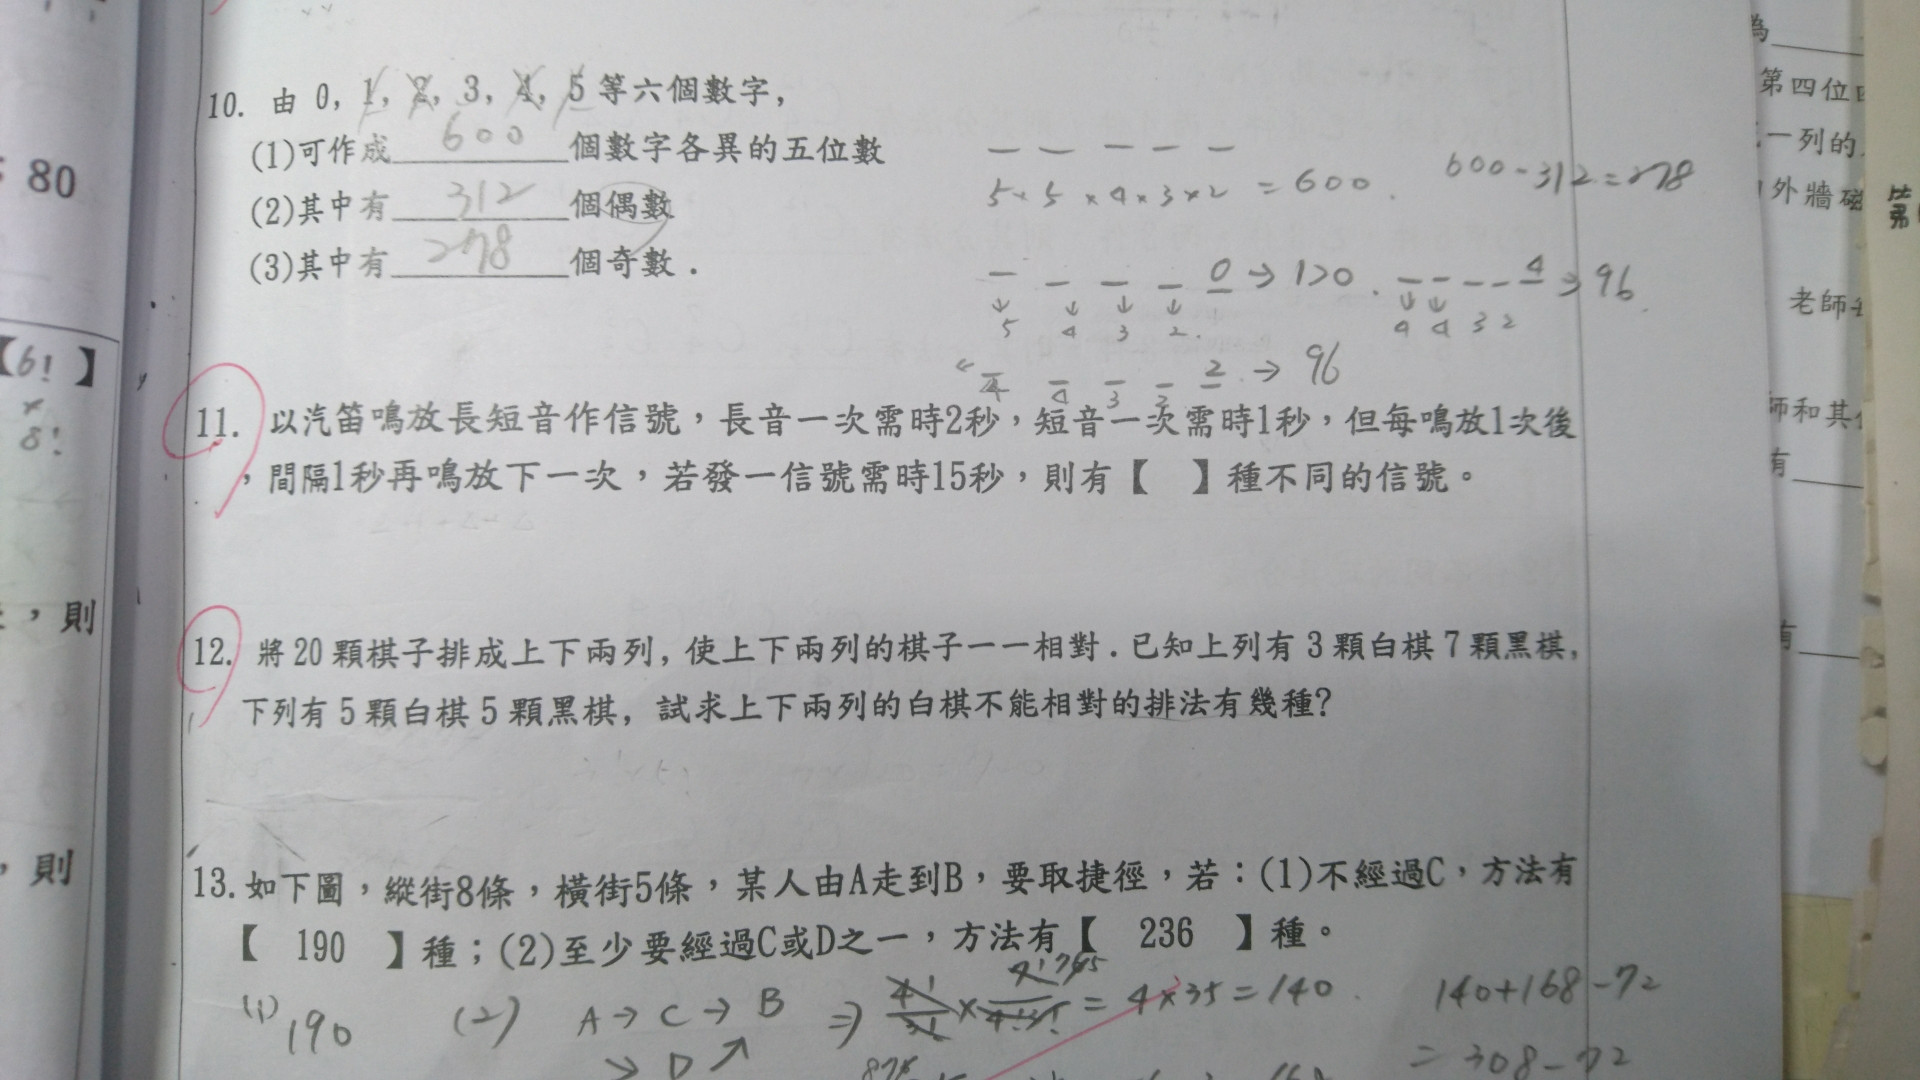 10. 由 0, 1, 2, 3, 4, 5 等六個數字,
(1)可作成 600 個數字各異的五位數
(2)其中有 312 個偶數
(3)其中有 278 個奇數.
5×5×4×3×2 = 600
600-312=278
0 → 120
5 4 3 2
4 → 96
4 4 3 2
2 → 96
4 4 3 2
11. 以汽笛鳴放長短音作信號，長音一次需時2秒，短音一次需時1秒，但每鳴放1次後
，間隔1秒再鳴放下一次，若發一信號需時15秒，則有【 】種不同的信號。
12. 將 20 顆棋子排成上下兩列, 使上下兩列的棋子一一相對. 已知上列有 3 顆白棋 7 顆黑棋,
下列有 5 顆白棋 5 顆黑棋, 試求上下兩列的白棋不能相對的排法有幾種?
13. 如下圖，縱街8條，橫街5條，某人由A走到B，要取捷徑，若：(1)不經過C，方法有
【 190 】種；(2)至少要經過C或D之一，方法有【 236 】種。
(1) 190
(2) A → C → B
D
= 4×35=140
140+168-72
= 308-72
80
【6!】
8!
，則
，則
為
第四位
一列的
外牆磁
老師
師和其
有
有
第